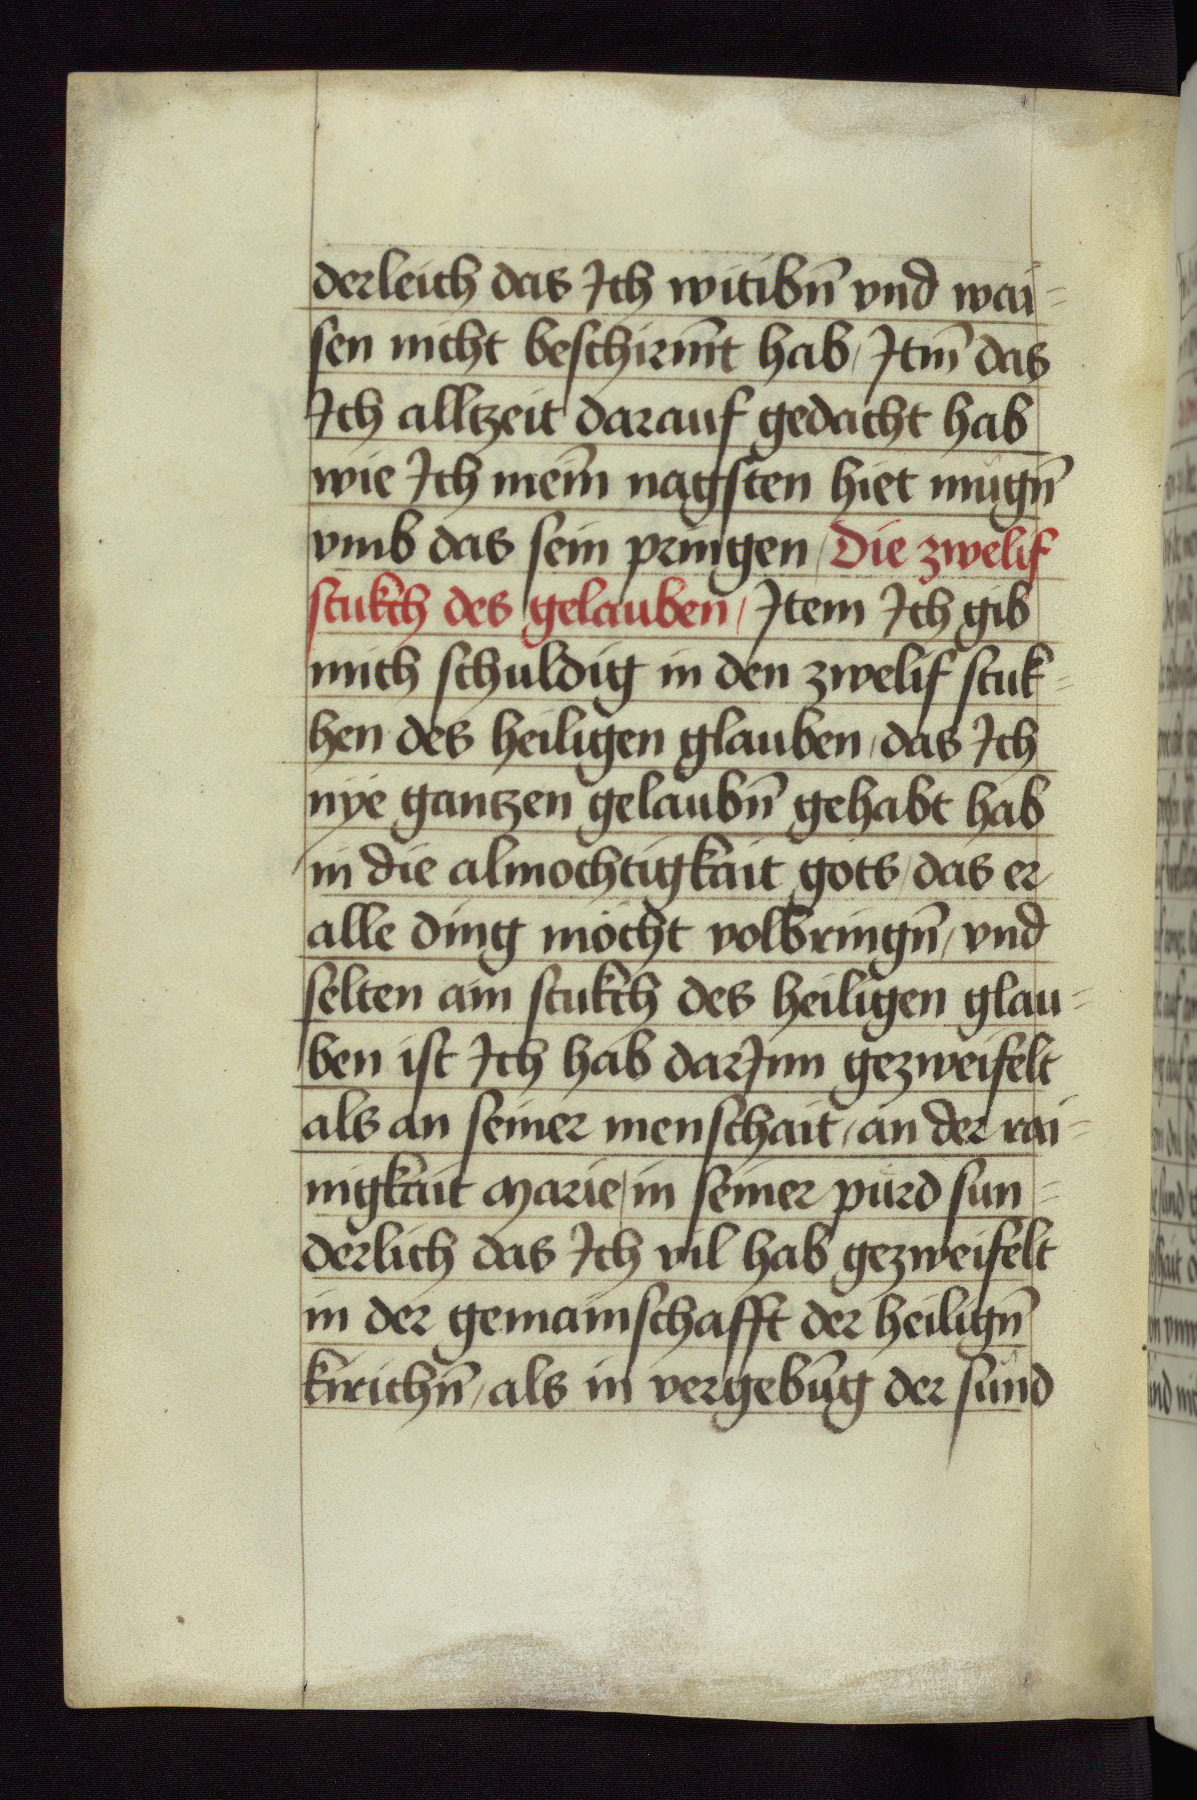 derleich das Ich witibn̄ vnd wai=
sen nicht beschirm̄t hab / Itm̄ das
Ich alltzeit darauf gedacht hab
wie Ich mein̄ nagsten hiet mügn̄
vmb das sein pringen / Die zwelif
stukch des gelauben / Item Ich gib
mich schuldig in den zwelif stuk=
hen des heiligen glauben / das Ich
nÿe gantzen gelaubn̄ gehabt hab
in die almochtigkait gots / das er
alle ding möcht volbringn̄ / vnd
selten ain stukch des heiligen glau=
ben ist Ich hab darInn gezweifelt
als an seiner menschait / an der rai=
nigkait Marie / in seiner pürd sun=
derlich das Ich vil hab gezweifelt
in der gemainschafft der heilign̄
kirichn̄ / als in vergebūg der sünd